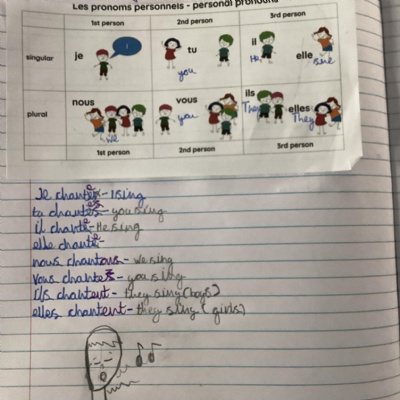 Les pronoms personnels - personal pronouns
1st person 2nd person 3rd person
singular je tu il elle
you He she
plural nous vous ils elles
we you They They
1st person 2nd person 3rd person
Je chante - I sing
tu chantes - you sing
il chante - He sing
elle chante -
nous chantons - we sing
vous chantez - you sing
ils chantent - they sing (boys)
elles chantent - they sing (girls)